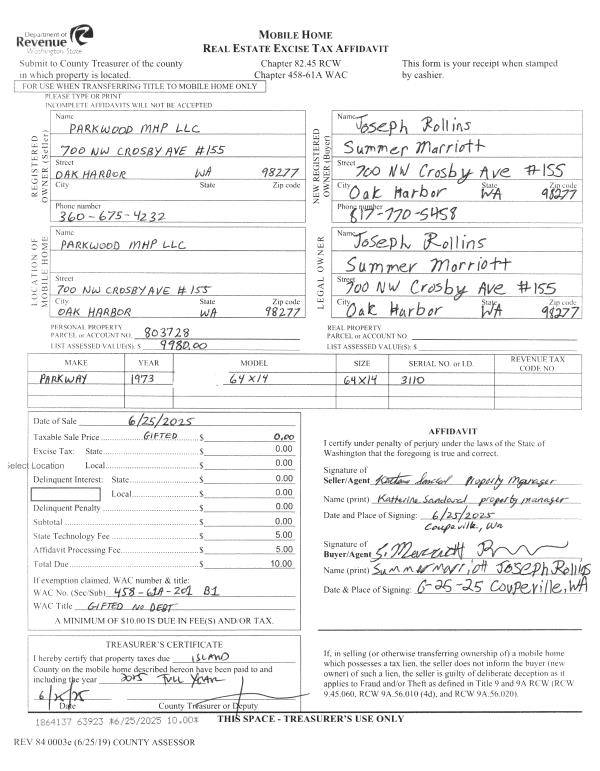 Department of
Revenue
Washington State
MOBILE HOME
REAL ESTATE EXCISE TAX AFFIDAVIT
Submit to County Treasurer of the county
in which property is located.
Chapter 82.45 RCW
Chapter 458-61A WAC
This form is your receipt when stamped
by cashier.
FOR USE WHEN TRANSFERRING TITLE TO MOBILE HOME ONLY
PLEASE TYPE OR PRINT
INCOMPLETE AFFIDAVITS WILL NOT BE ACCEPTED
REGISTERED OWNER (Seller)
Name
PARKWOOD MHP LLC
700 NW CROSBY AVE #155
Street
OAK HARBOR WA 98277
City State Zip code
Phone number
360-675-4232
NEW REGISTERED OWNER (Buyer)
Name Joseph Rollins
Summer Marriott
Street 700 NW Crosby Ave #155
City Oak Harbor State WA Zip code 98277
Phone number
817-770-5458
LOCATION OF MOBILE HOME
Name
PARKWOOD MHP LLC
Street
700 NW CROSBY AVE #155
City State Zip code
OAK HARBOR WA 98277
LEGAL OWNER
Name Joseph Rollins
Summer Morriott
Street
700 NW Crosby Ave #155
City Oak Harbor State WA Zip code 98277
PERSONAL PROPERTY
PARCEL or ACCOUNT NO. 803728
LIST ASSESSED VALUE(S): $ 9980.00
REAL PROPERTY
PARCEL or ACCOUNT NO
LIST ASSESSED VALUE(S): $
MAKE YEAR MODEL SIZE SERIAL NO. or I.D. REVENUE TAX CODE NO.
PARKWAY 1973 64X14 64X14 3110
Date of Sale 6/25/2025
Taxable Sale Price GIFTED $ 0.00
Excise Tax: State $ 0.00
Select Location Local $ 0.00
Delinquent Interest: State $ 0.00
Local $ 0.00
Delinquent Penalty $ 0.00
Subtotal $ 0.00
State Technology Fee $ 5.00
Affidavit Processing Fee $ 5.00
Total Due $ 10.00
If exemption claimed, WAC number & title:
WAC No. (Sec/Sub) 458-61A-201 B1
WAC Title GIFTED NO DEBT
A MINIMUM OF $10.00 IS DUE IN FEE(S) AND/OR TAX.
AFFIDAVIT
I certify under penalty of perjury under the laws of the State of
Washington that the foregoing is true and correct.
Signature of
Seller/Agent Property Manager
Name (print) Katherine Sandoval property manager
Date and Place of Signing: 6/25/2025
Coupeville, Wa
Signature of
Buyer/Agent S. Merriott
Name (print) Summer Marriott Joseph Rollins
Date & Place of Signing: 6-25-25 Coupeville, WA
TREASURER'S CERTIFICATE
I hereby certify that property taxes due ISLAND
County on the mobile home described hereon have been paid to and
including the year 2025 FULL YEAR
Date County Treasurer or Deputy
If, in selling (or otherwise transferring ownership of) a mobile home
which possesses a tax lien, the seller does not inform the buyer (new
owner) of such a lien, the seller is guilty of deliberate deception as it
applies to Fraud and/or Theft as defined in Title 9 and 9A RCW (RCW
9.45.060, RCW 9A.56.010 (4d), and RCW 9A.56.020).
1864137 63923 *6/25/2025 10.00*
THIS SPACE - TREASURER'S USE ONLY
REV 84 0003e (6/25/19) COUNTY ASSESSOR